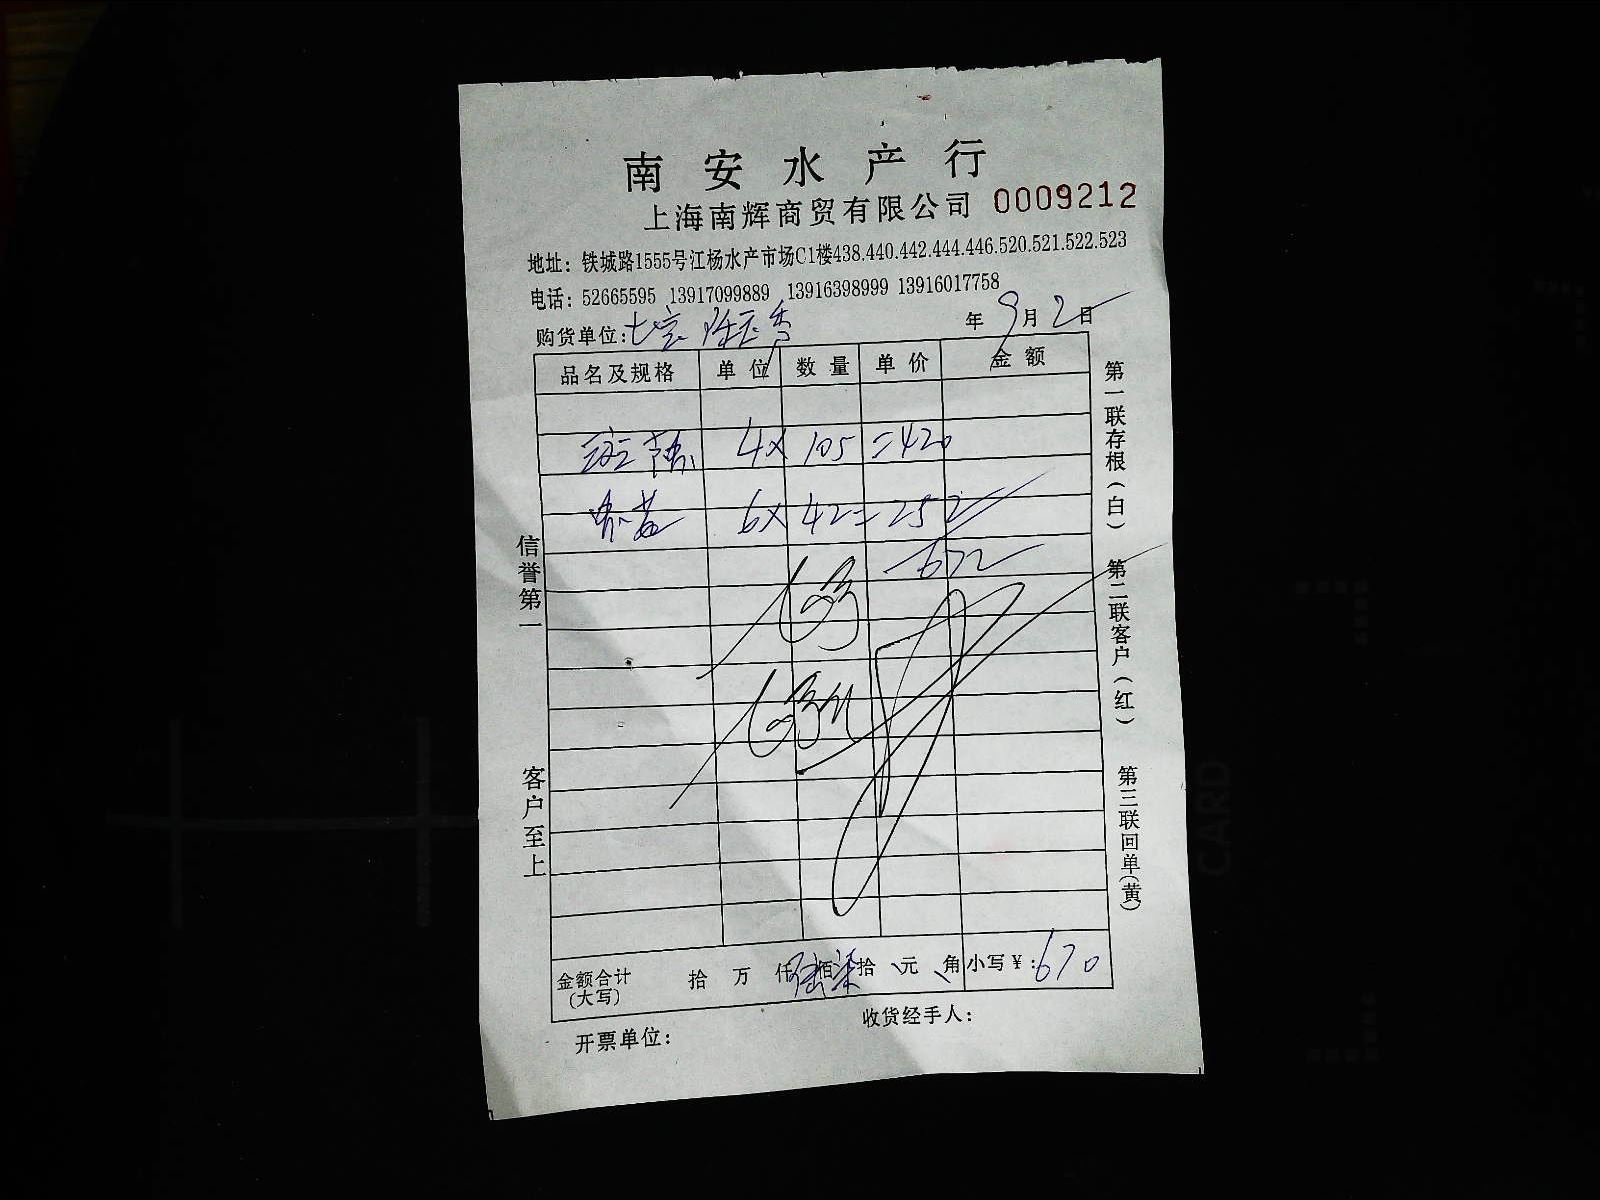 南安水产行
上海南辉商贸有限公司 0009212
地址：铁城路1555号江杨水产市场C1楼438.440.442.444.446.520.521.522.523
电话：52665595 13917099889 13916398999 13916017758
购货单位：七宝 年9月2日
品名及规格 单位 数量 单价 金额
4× 105=420
6× 42=252
672
金额合计(大写) 拾 万 仟陆佰柒拾 元 角 小写￥：670
开票单位： 收货经手人：
信誉第一
客户至上
第一联存根(白)
第二联客户(红)
第三联回单(黄)